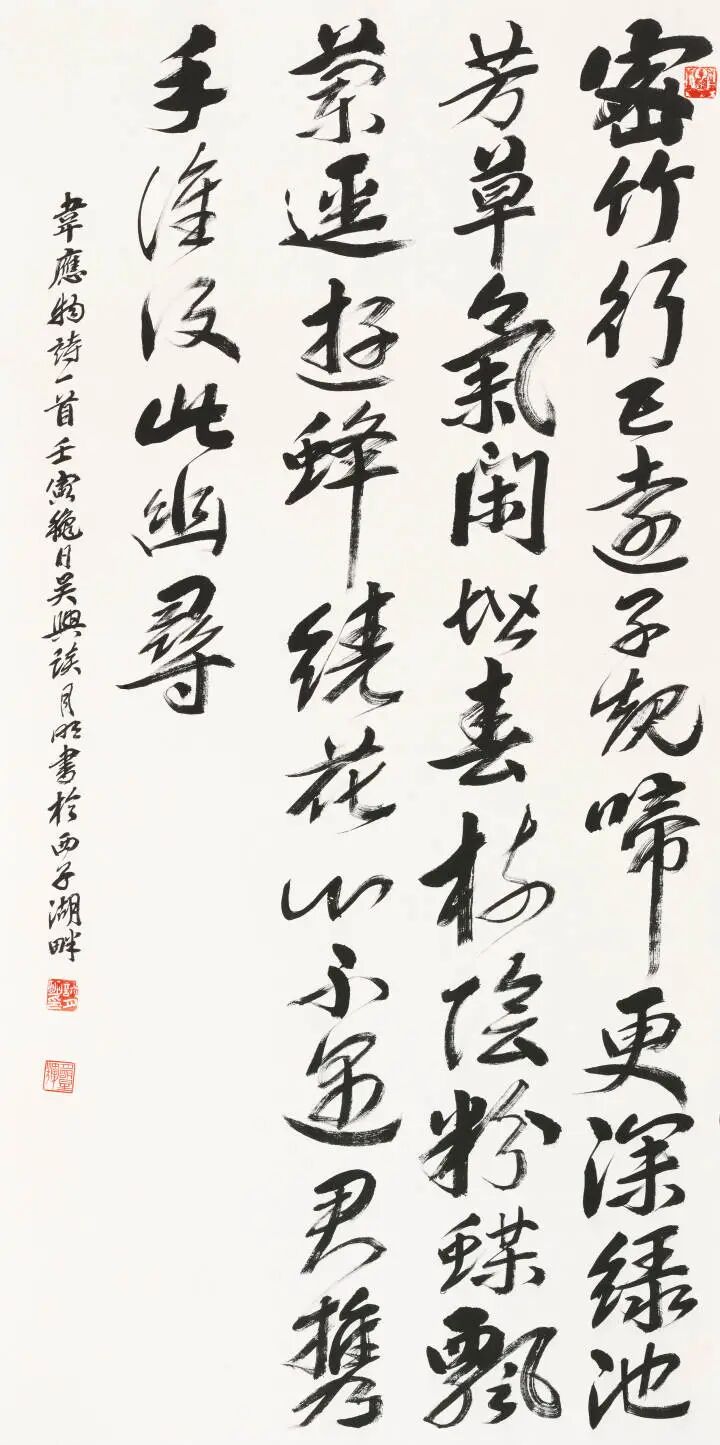 密竹行已遠子規啼更深緑池
芳草氣閑春樹陰粉蝶飄
蘭逕遊蜂繞花心不遇君携
手誰復此幽尋
韋應物詩一首壬寅穐日吳興談月明書於西子湖畔